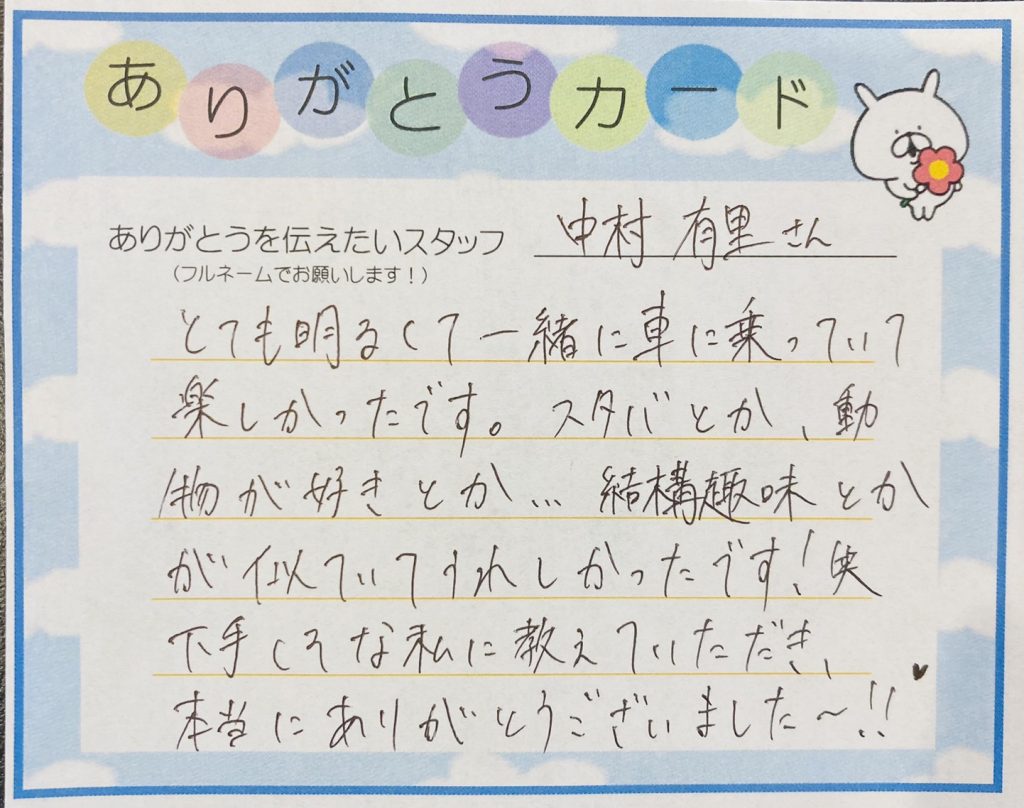 ありがとうカード
ありがとうを伝えたいスタッフ 中村 有里さん
(フルネームでお願いします!)
とても明るくて一緒に車に乗っていて
楽しかったです。スタバとか、動
物が好きとか… 結構趣味とか
が似ていてうれしかったです!
下手くそな私に教えていただき、
本当にありがとうございました〜!!